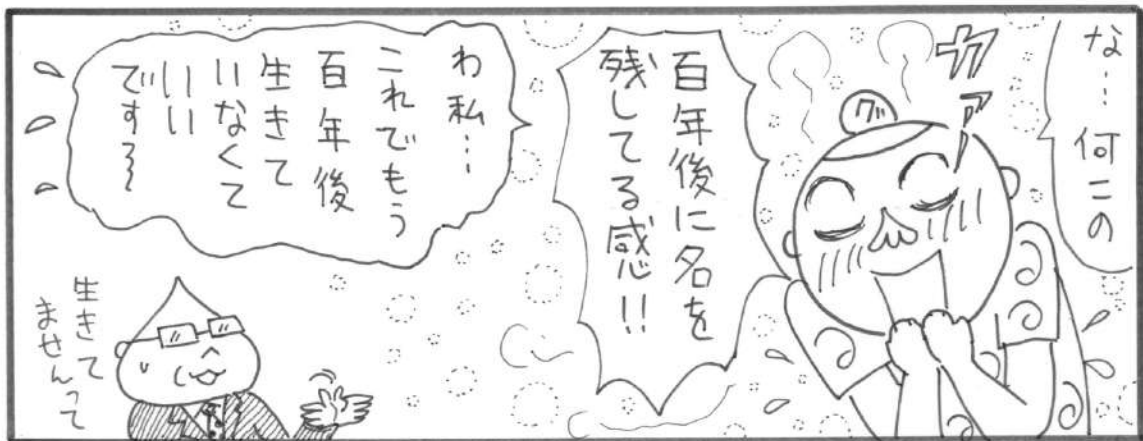 な…何この
カアァ
グ
百年後に名を
残してる感!!
わ私…
これでもう
百年後
生きて
いなくて
いい
です〜
生きて
ませんって